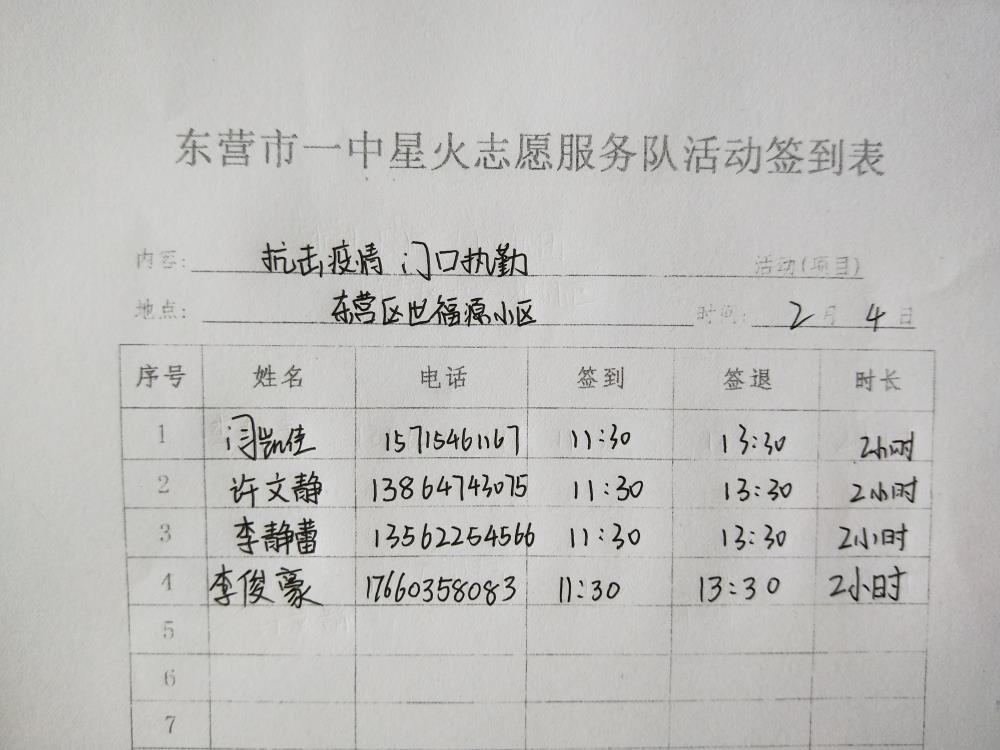 东营市一中星火志愿服务队活动签到表
内容: 抗击疫情 门口执勤 活动(项目)
地点: 东营区世福源小区 时间: 2月4日
序号 姓名 电话 签到 签退 时长
1 闫凯佳 15715461167 11:30 13:30 2小时
2 许文静 13864743075 11:30 13:30 2小时
3 李静蕾 13562254566 11:30 13:30 2小时
4 李俊豪 17660358083 11:30 13:30 2小时
5
6
7